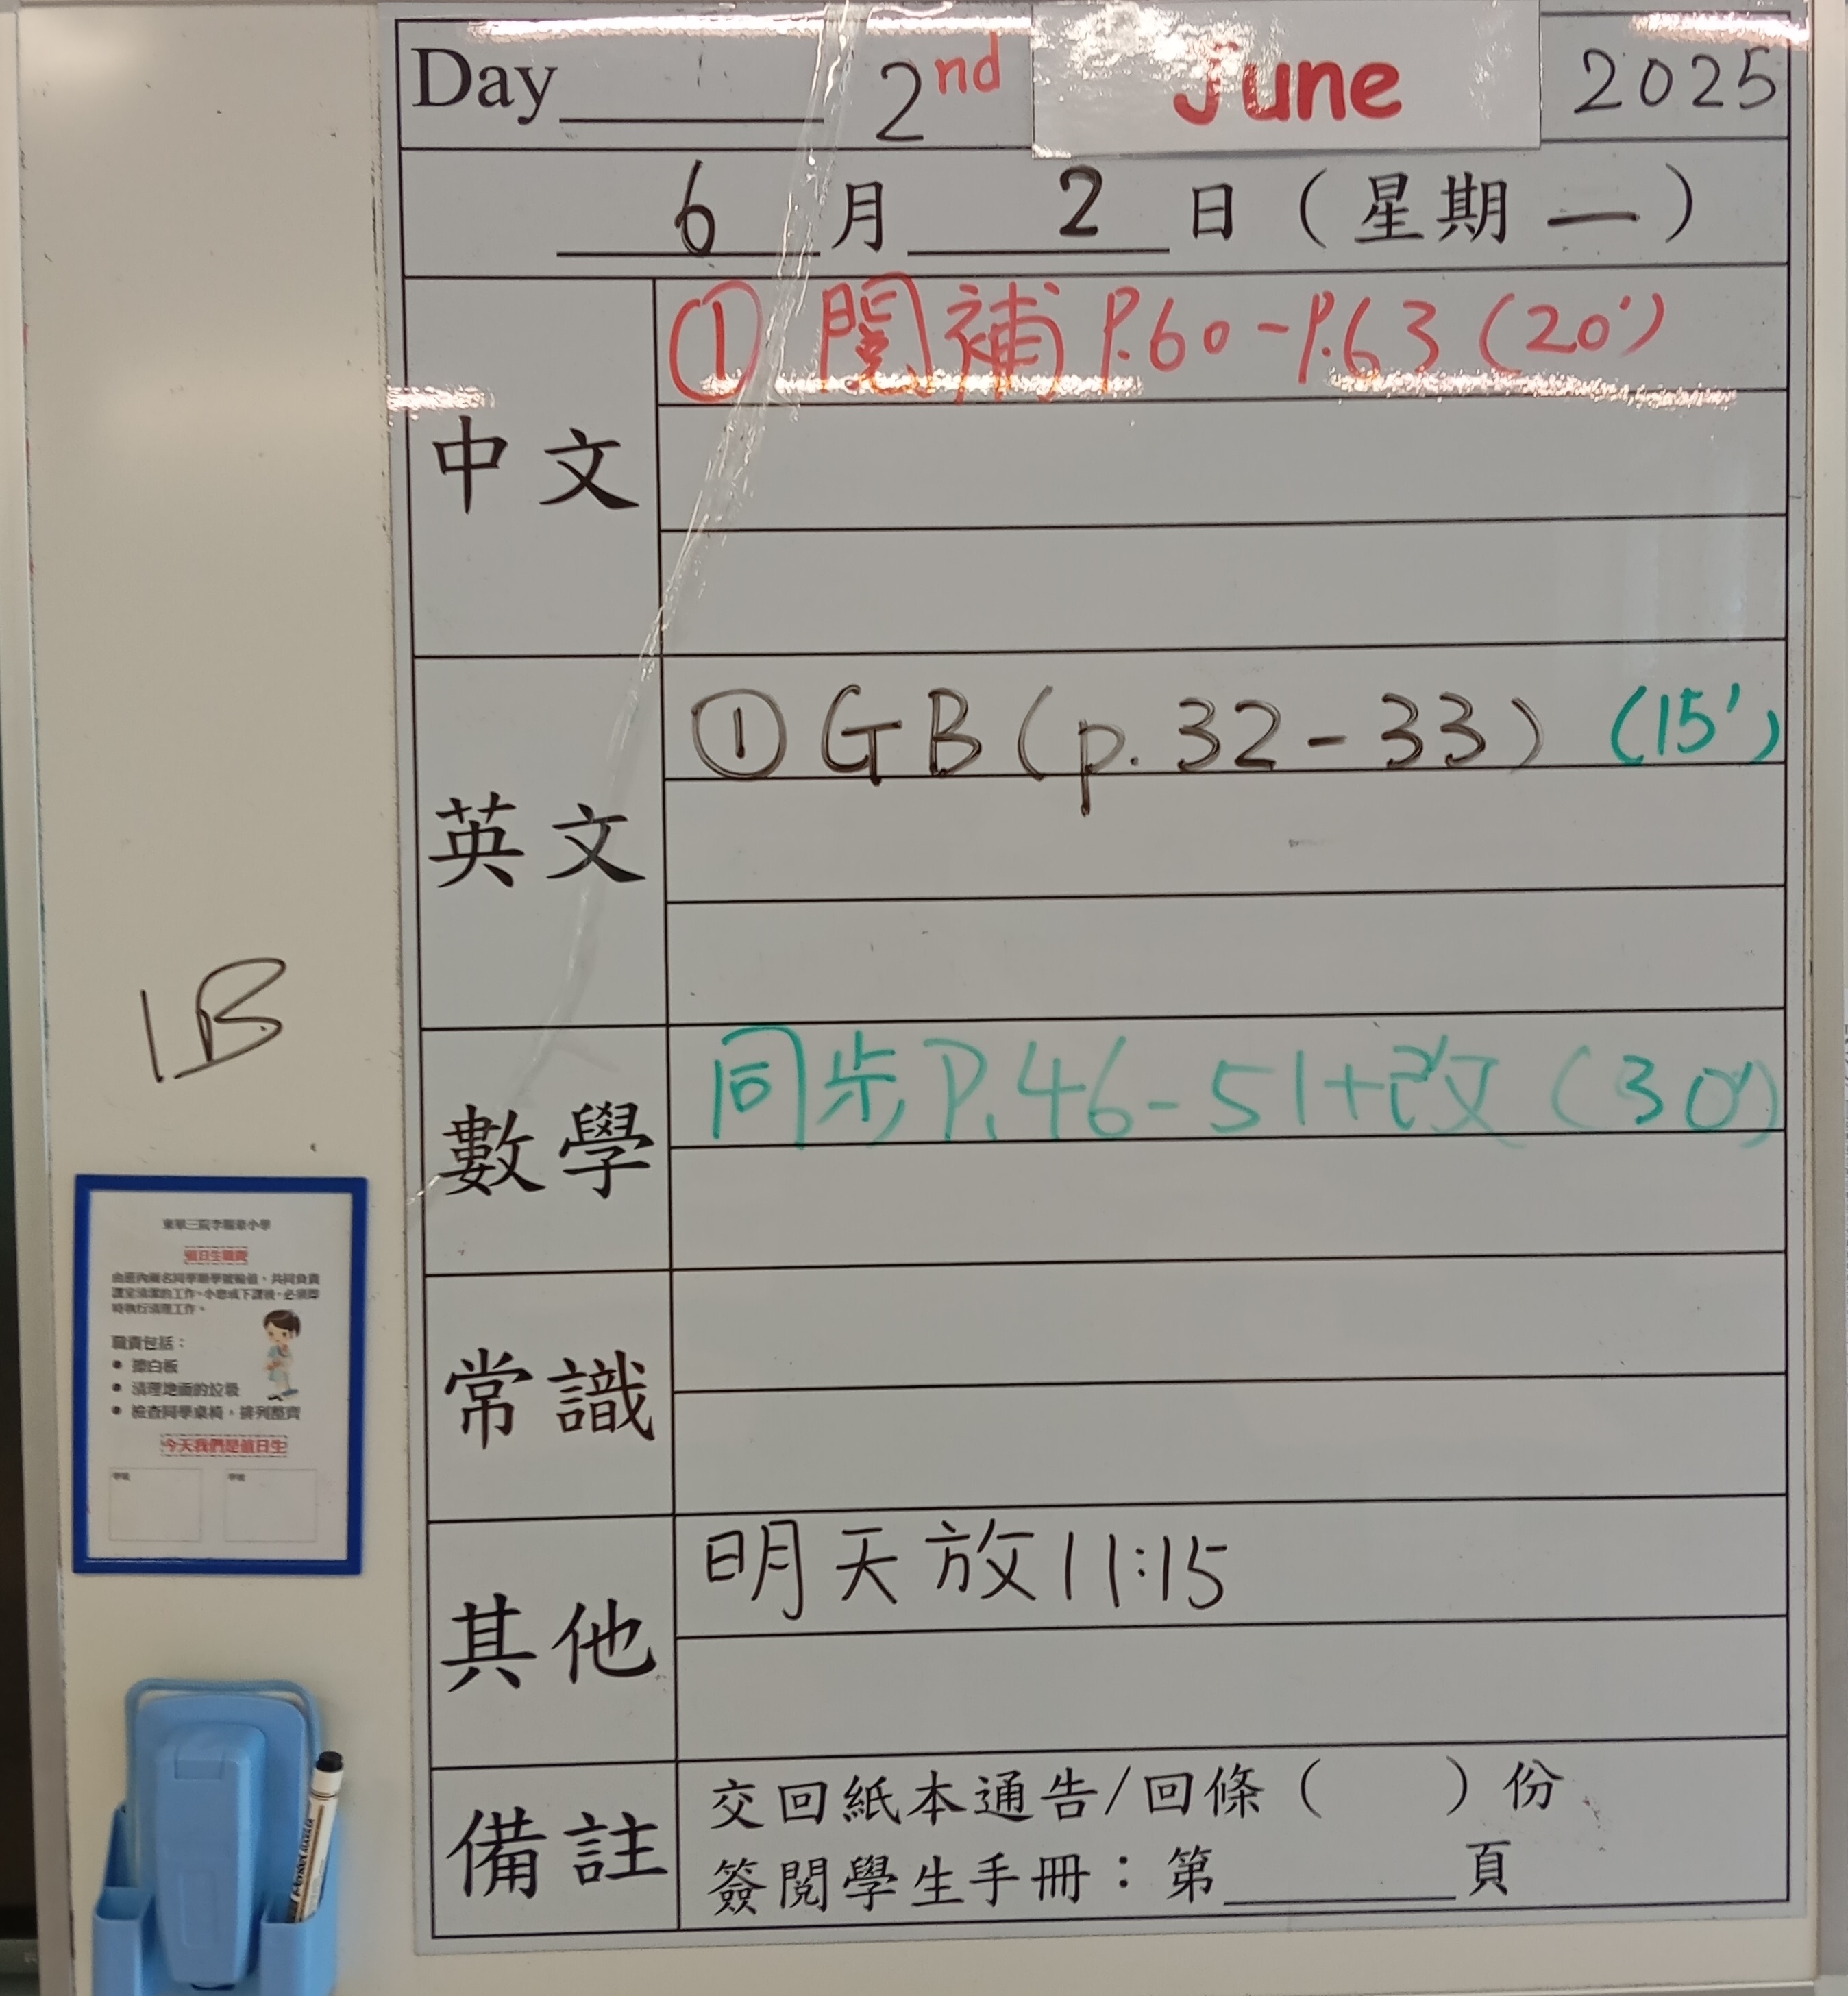 Day 2nd June 2025
6月2日(星期一)
中文
① 閱補 P.60-P.63 (20')
英文
① GB (p.32-33) (15')
數學
同步 P.46-51+改 (30')
常識
其他
明天放11:15
備註
交回紙本通告/回條( )份
簽閱學生手冊:第____頁
1B
值日生職責
由班內兩名同學順學號輪值,共同負責
課室清潔的工作。小息或下課後,必須即
時執行清理工作。
職責包括:
● 擦白板
● 清理地面的垃圾
● 檢查同學桌椅,排列整齊
今天我們是值日生
學號 學號